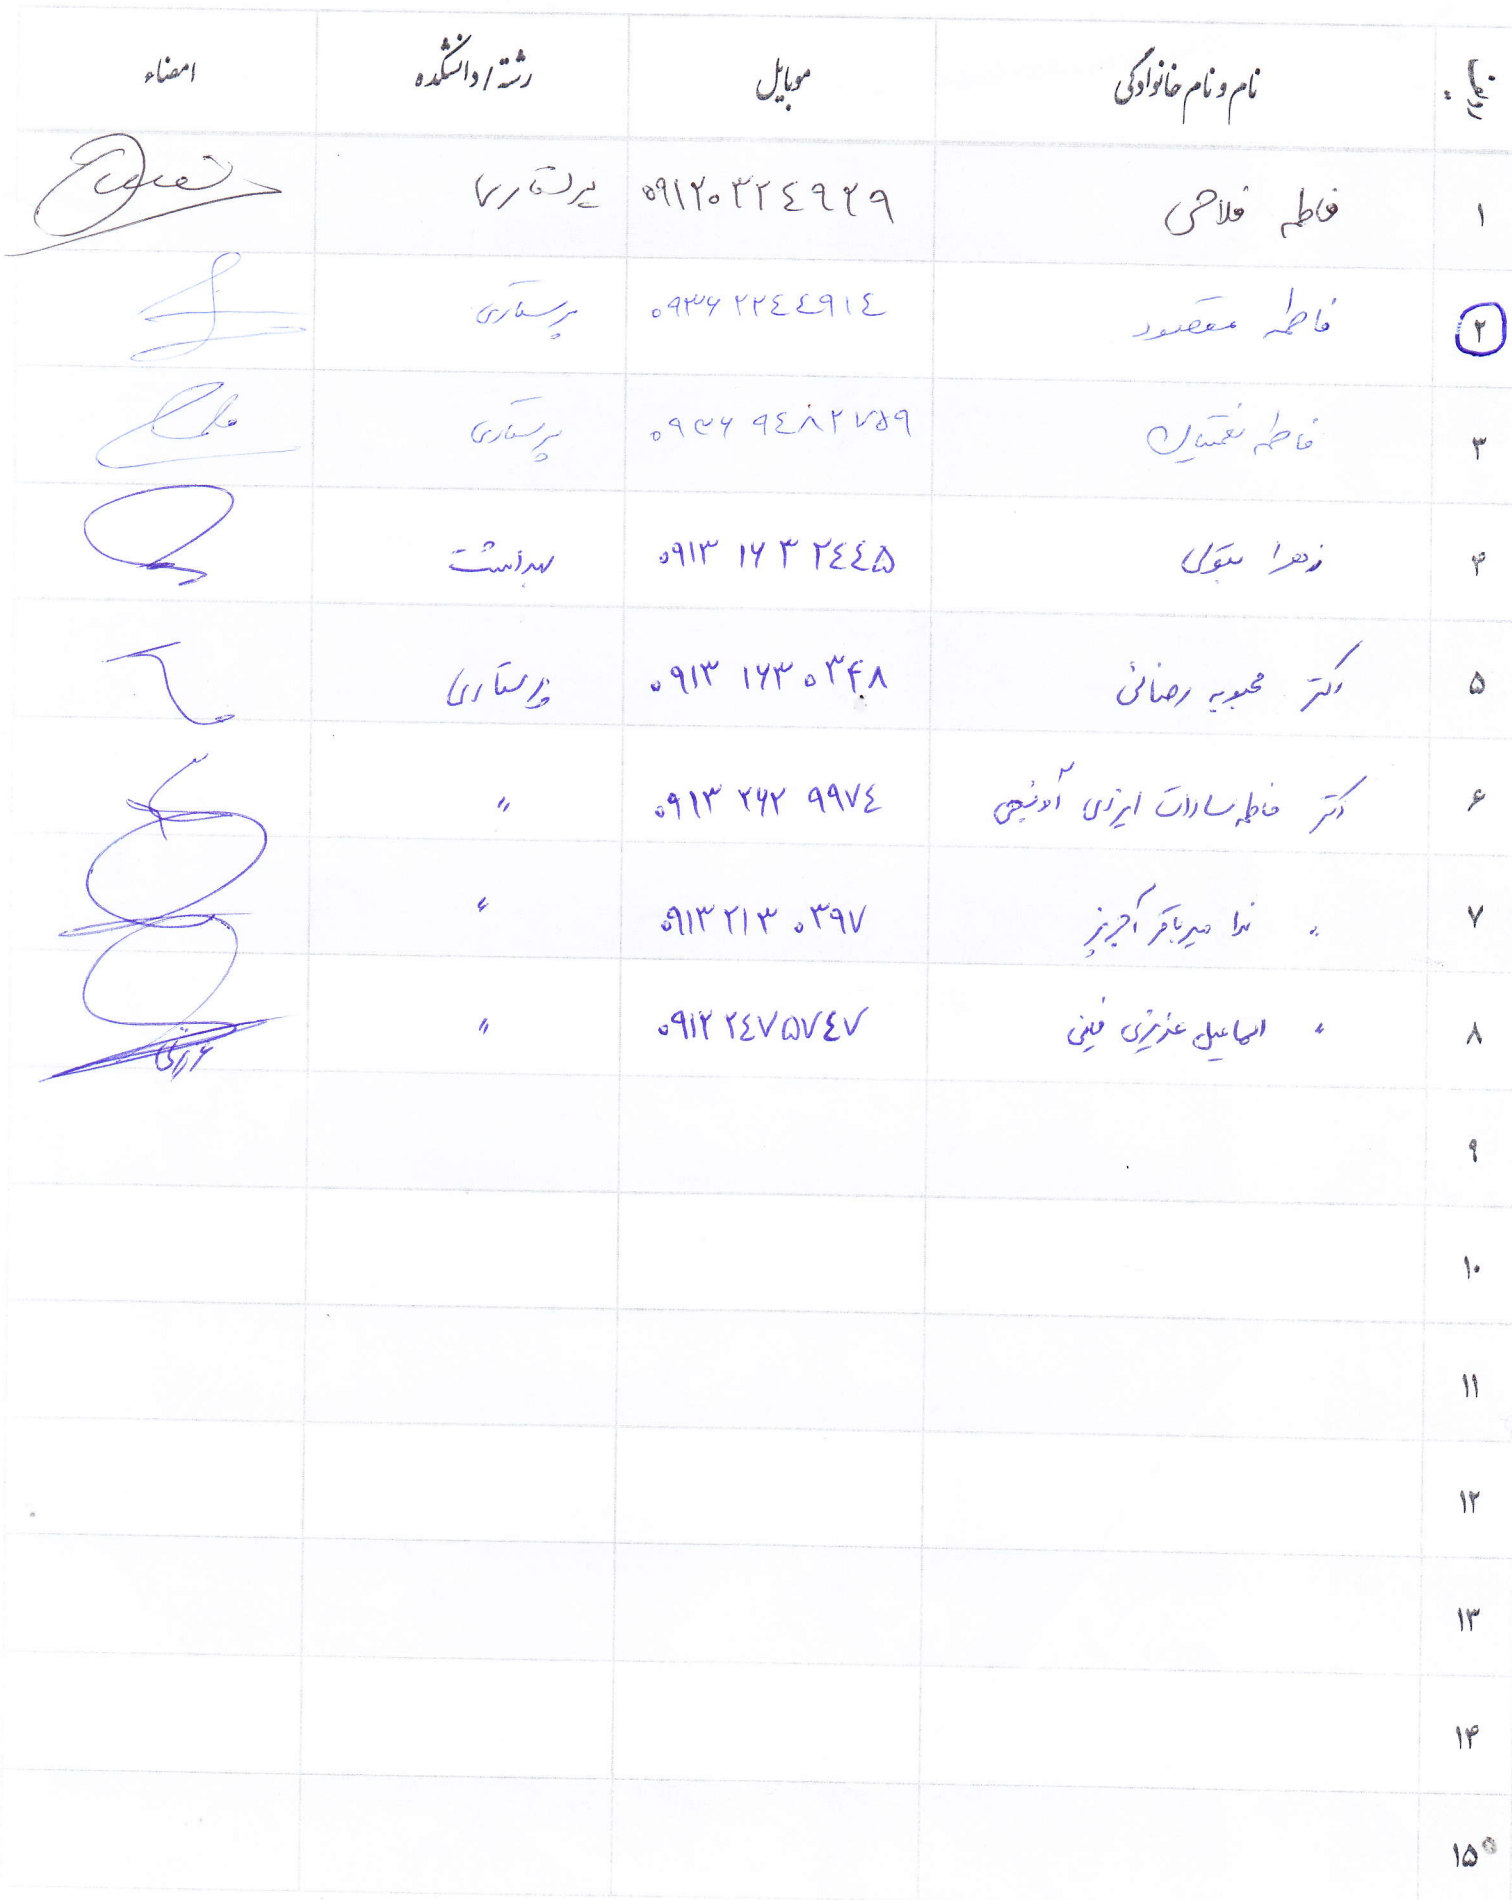 ردیف نام و نام خانوادگی موبایل رشته / دانشکده امضاء
۱ فاطمه فلاحی ۰۹۱۲۰۳۲۴۹۲۹ پرستاری
۲ فاطمه مقصود ۰۹۳۶ ۲۲۴۴۹۱۴ پرستاری
۳ فاطمه نعمتیان ۰۹۳۶ ۹۴۸۲۷۵۹ پرستاری
۴ زهرا بتولی ۰۹۱۳ ۱۶۳ ۲۴۴۵ بهداشت
۵ دکتر محبوبه رضائی ۰۹۱۳ ۱۶۳۰۳۴۸ پرستاری
۶ دکتر فاطمه سادات ایزدی آونیجی ۰۹۱۳ ۲۶۲ ۹۹۷۴ "
۷ " ندا میرباقر آجرپز ۰۹۱۳۲۱۳۰۳۹۷ "
۸ " اسماعیل عزیزی فینی ۰۹۱۲ ۲۴۷۵۷۴۷ "
۹
۱۰
۱۱
۱۲
۱۳
۱۴
۱۵